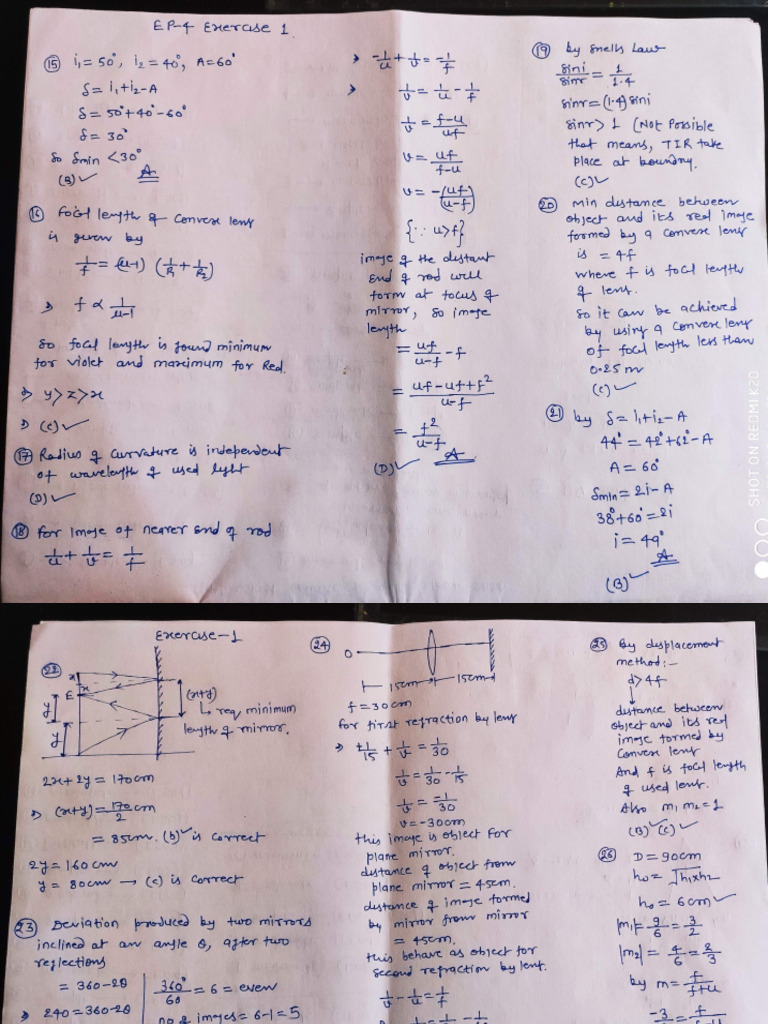 EP-4 Exercise 1
(15) i₁ = 50°, i₂ = 40°, A = 60°
δ = i₁+i₂-A
δ = 50°+40°-60°
δ = 30°
so δmin < 30°
(B) ✓ A
(16) Focal length of convex lens
is given by
1/f = (μ-1) (1/R₁ + 1/R₂)
⇒ f ∝ 1/(μ-1)
so focal length is found minimum
for violet and maximum for Red.
⇒ y > z > x
⇒ (C) ✓
(17) Radius of curvature is independent
of wavelength of used light
(D) ✓
(18) For image of nearer end of rod
1/u + 1/v = 1/f
⇒ -1/u + 1/v = -1/f
⇒ 1/v = 1/u - 1/f
1/v = (f-u)/uf
v = uf/(f-u)
v = -(uf)/(u-f)
{∵ u>f}
image of the distant
end of rod will
form at focus of
mirror, so image
length
= uf/(u-f) - f
= (uf-uf+f²)/(u-f)
= f²/(u-f)
(D) ✓ A
(19) by Snells Law
sini/sinr = 1/1.4
sinr = (1.4) sini
sinr > 1 (Not Possible
that means, TIR take
place at boundry.
(C) ✓
(20) Min distance between
object and its real image
formed by a convex lens
is = 4f
where f is focl length
of lens.
So it can be achieved
by using a convex lens
of focal length less than
0.25 m
(C) ✓
(21) by δ = i₁+i₂-A
44° = 42°+62°-A
A = 60°
δmin = 2i-A
38°+60° = 2i
i = 49°
A
(B) ✓
SHOT ON REDMI K20
Exercise-1
(22) x
E x
y
y
(x+y)
↳ req minimum
length of mirror.
2x+2y = 170cm
⇒ (x+y) = 170/2 cm
= 85cm. (b) ✓ is correct
2y = 160 cm
y = 80cm → (c) is correct
(23) Deviation produced by two mirrors
inclined at an angle θ, after two
reflections
= 360-2θ
⇒ 240 = 360-2θ
360°/60 = 6 = even
no of images = 6-1 = 5
(24) O
15cm 15cm
f = 30cm
for first refraction by lens
⇒ +1/15 + 1/v = 1/30
1/v = 1/30 - 1/15
1/v = -1/30
v = -30cm
this image is object for
plane mirror.
distance of object from
plane mirror = 45cm.
distance of image formed
by mirror from mirror
= 45cm.
this behave as object for
second refraction by lent.
1/v - 1/u = 1/f
(25) By displacement
method:-
d > 4f
↓
distance between
object and its real
image formed by
convex lens
And f is focl length
of used lens.
Also m₁ m₂ = 1
(B) ✓ (C) ✓
(26) D = 90cm
ho = √(h₁×h₂)
ho = 6cm ✓
|m₁| = 9/6 = 3/2
|m₂| = 4/6 = 2/3
by m = f/(f+u)